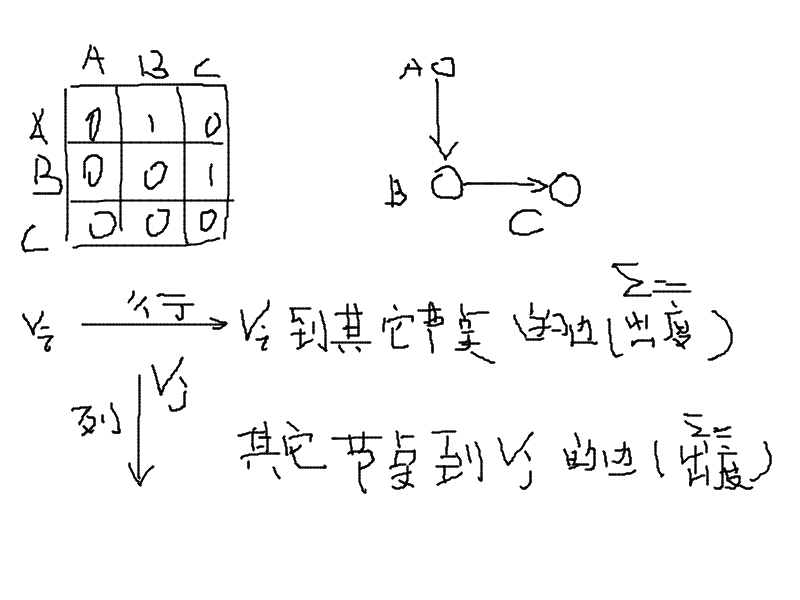 A B C
A 0 1 0
B 0 0 1
C 0 0 0
A
B
C
Vi 行 Vi 到其它节点的边(出度)
Σ=
列 Vj
其它节点到Vj的边(出度)
Σ=